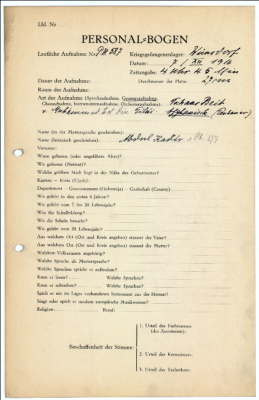 Lfd. Nr
PERSONAL-BOGEN
Lautliche Aufnahme Nr: PK 587
Kriegsgefangenenlager:
Datum: 7. / XII. 1916
Zeitangabe: 4 Uhr 45 Min
Dauer der Aufnahme:
Durchmesser der Platte:
Raum der Aufnahme:
Art der Aufnahme (Sprechaufnahme, Gesangsaufnahme,
Choraufnahme, Instrumentenaufnahme, Orchesteraufnahme):
Name (in der Muttersprache geschrieben):
Name (lateinisch geschrieben): Abdul Kadir
Vorname:
Wann geboren (oder ungefähres Alter)?
Wo geboren (Heimat)?
Welche größere Stadt liegt in der Nähe des Geburtsortes?
Kanton — Kreis (Ujedz):
Departement — Gouvernement (Gubernija) — Grafschaft (County):
Wo gelebt in den ersten 6 Jahren?
Wo gelebt vom 7. bis 20. Lebensjahr?
Was für Schulbildung?
Wo die Schule besucht?
Wo gelebt vom 20. Lebensjahr?
Aus welchem Ort (Ort und Kreis angeben) stammt der Vater?
Aus welchem Ort (Ort und Kreis angeben) stammt die Mutter?
Welchem Volksstamm angehörig?
Welche Sprache als Muttersprache?
Welche Sprachen spricht er außerdem?
Kann er lesen? Welche Sprachen?
Kann er schreiben? Welche Sprachen?
Spielt er ein im Lager vorhandenes Instrument aus der Heimat?
Singt oder spielt er modern europäische Musikweisen?
Religion: Beruf:
Beschaffenheit der Stimme:
1. Urteil des Fachmannes
(des Assistenten):
2. Urteil des Kommissars:
3. Urteil des Technikers: